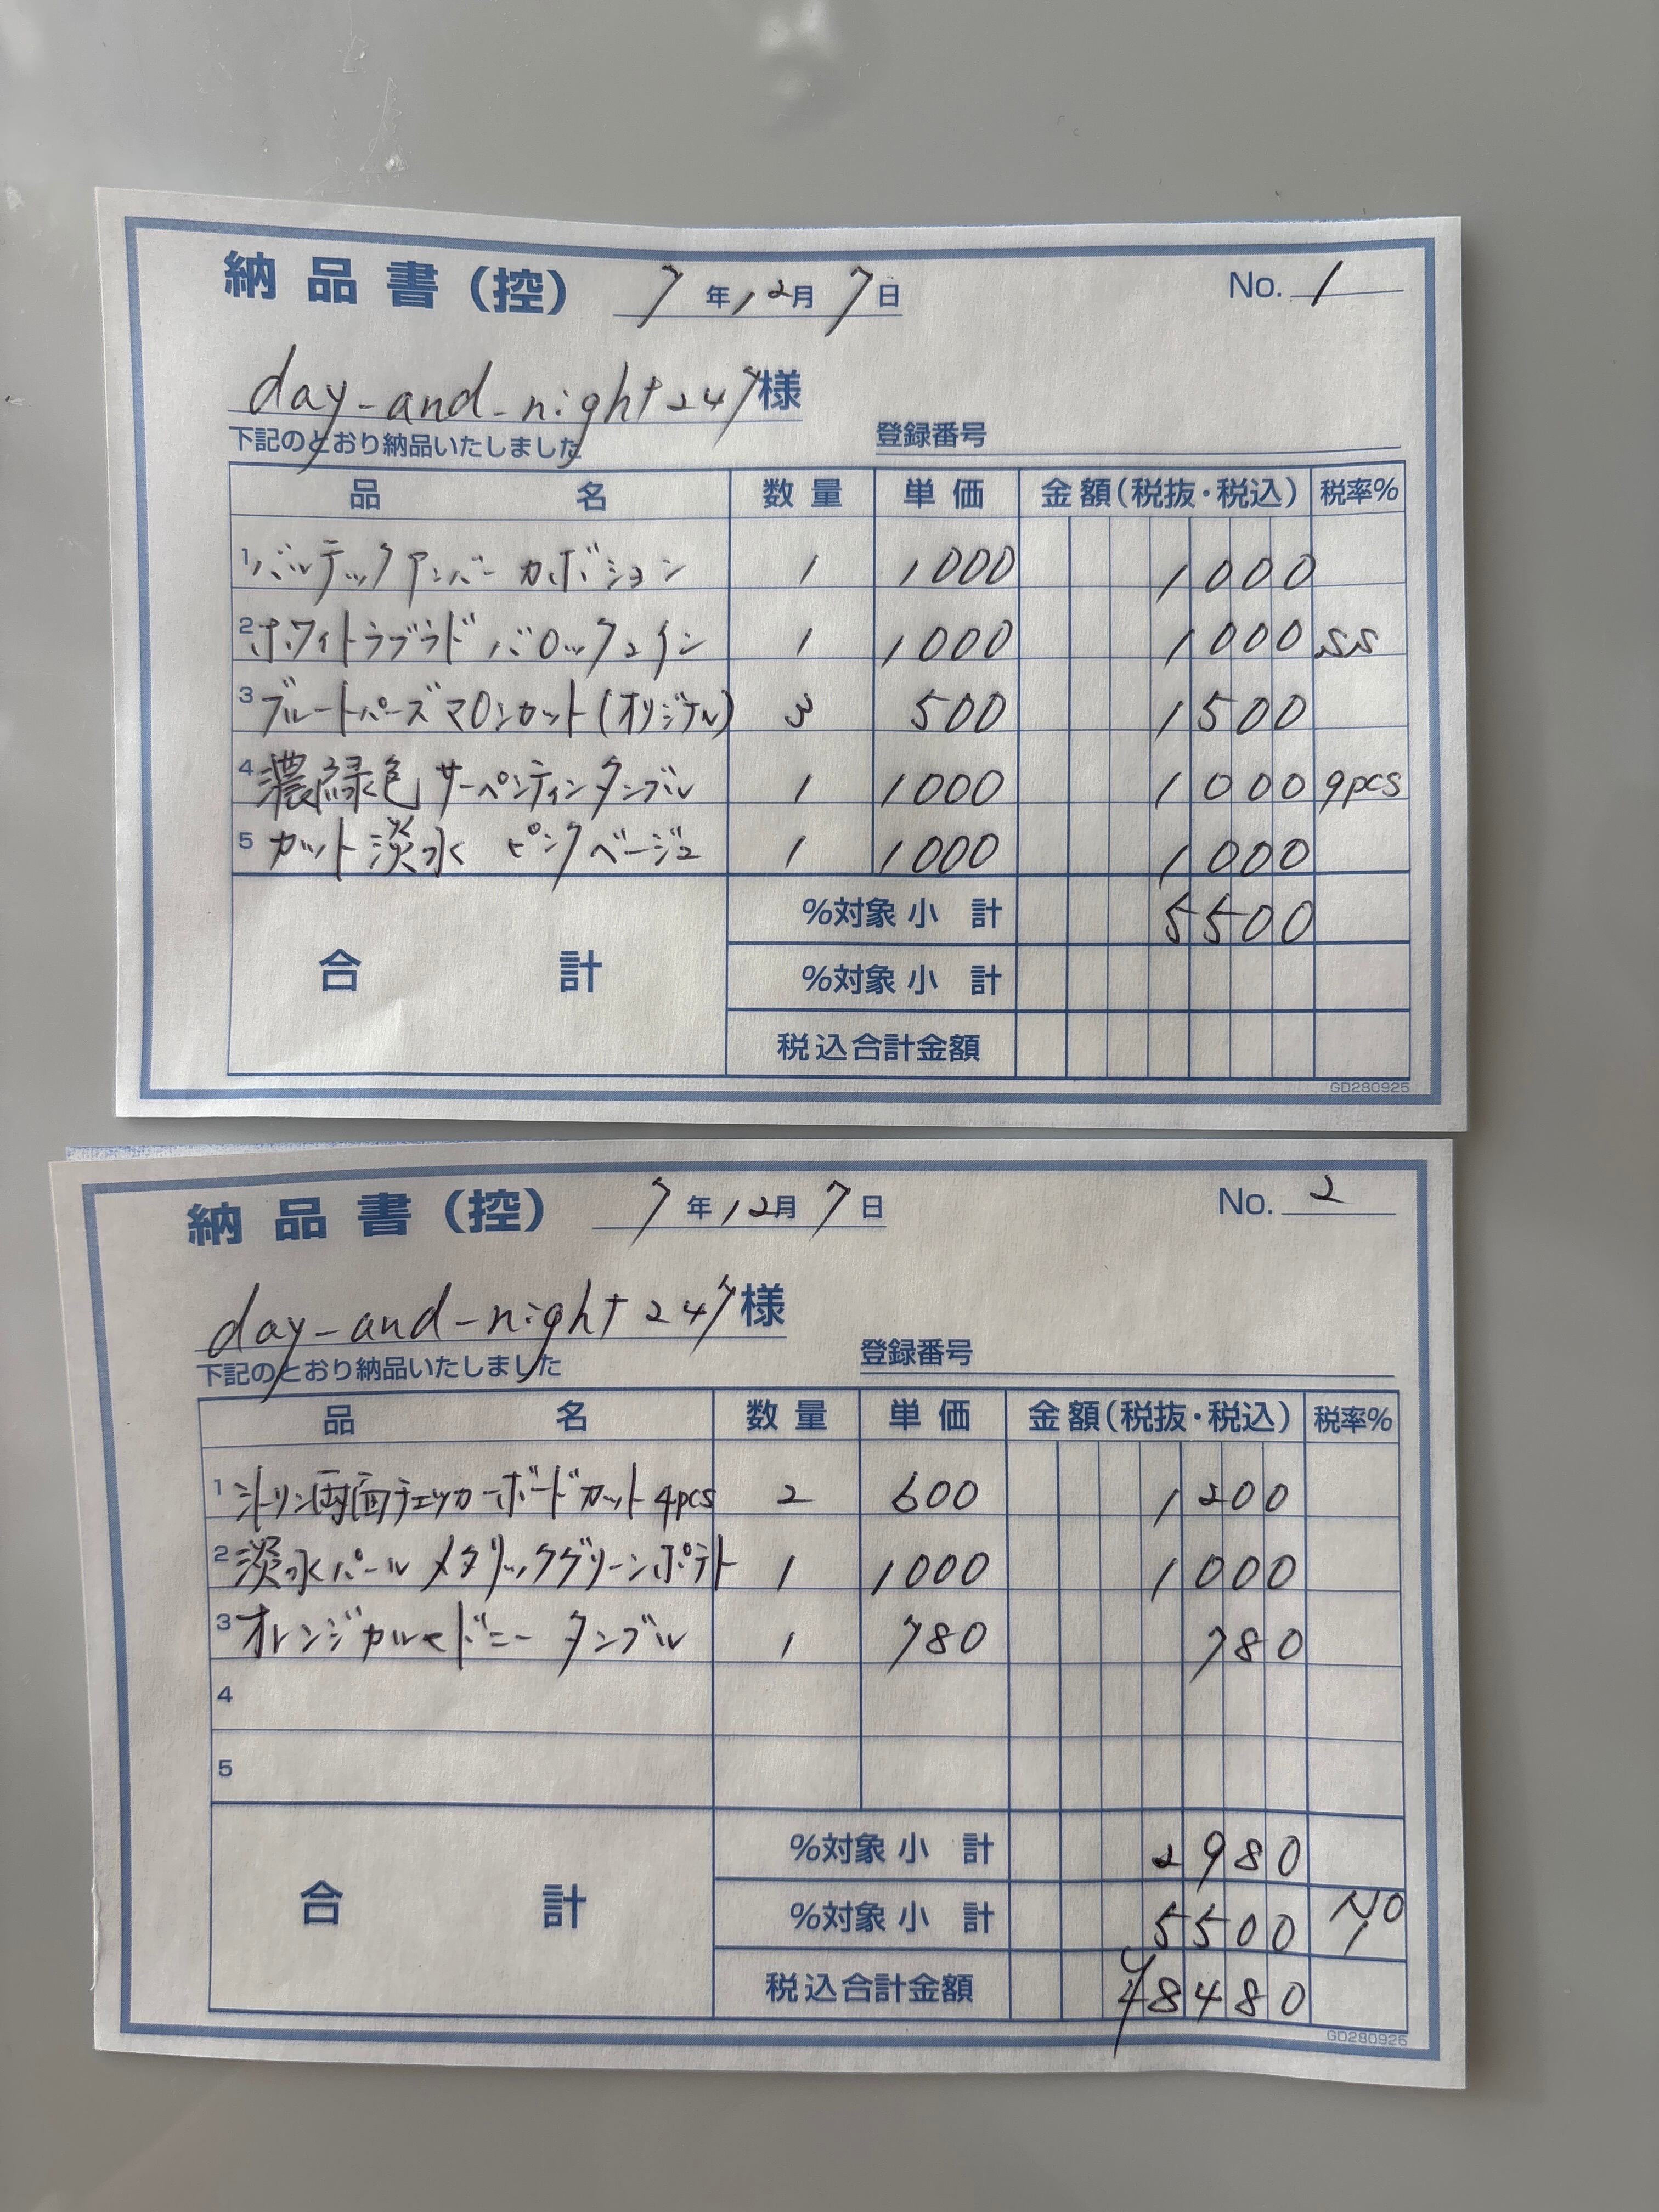 納品書(控) 7年12月7日 No. 1
day-and-night247様
下記のとおり納品いたしました 登録番号
品名 数量 単価 金額(税抜・税込) 税率%
1 バルテックアンバー カボション 1 1000 1000
2 ホワイトラブラド バロックコイン 1 1000 1000 SS
3 ブルートパーズ マロンカット(オリジナル) 3 500 1500
4 濃緑色 サーペンティン タンブル 1 1000 1000 9pcs
5 カット淡水 ピンクベージュ 1 1000 1000
%対象 小計 5500
合計
%対象 小計
税込合計金額
GD280925
納品書(控) 7年12月7日 No. 2
day-and-night247様
下記のとおり納品いたしました 登録番号
品名 数量 単価 金額(税抜・税込) 税率%
1 シトリン両面チェッカーボードカット 4pcs 2 600 1200
2 淡水パール メタリックグリーンポテト 1 1000 1000
3 オレンジカルセドニー タンブル 1 780 780
4
5
%対象 小計 2980
合計
%対象 小計 5500 NO1
税込合計金額 ¥8480
GD280925